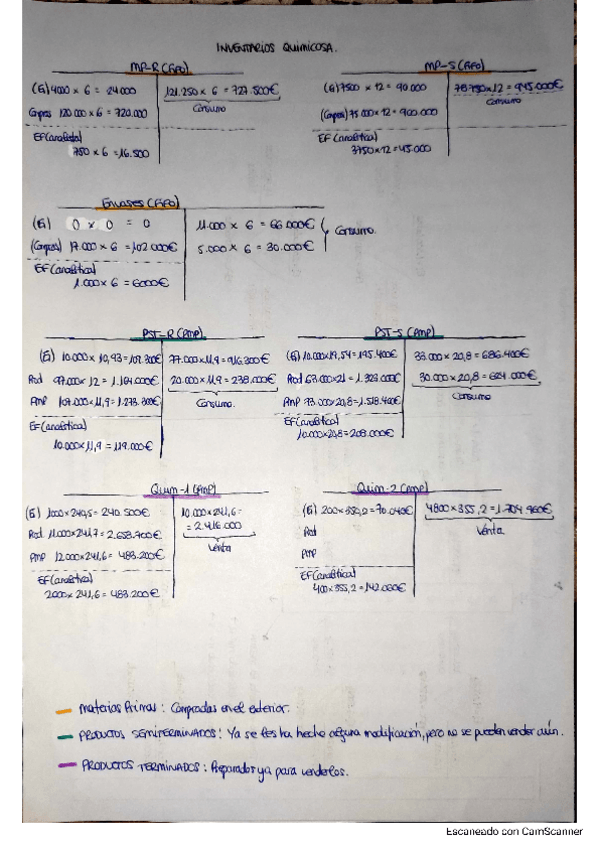 INVENTARIOS QUIMICOSA.
MP-R (FIFO)
(Ei) 4000 x 6 = 24.000
121.250 x 6 = 727.500€
Consumo
Compras 120.000 x 6 = 720.000
EF (analítica)
750 x 6 = 16.500
MP-S (FIFO)
(Ei) 7500 x 12 = 90.000
78.750 x 12 = 945.000€
Consumo
(Compras) 75.000 x 12 = 900.000
EF (Analítica)
3750 x 12 = 45.000
Envases (FIFO)
(Ei) 0 x 0 = 0
11.000 x 6 = 66.000€
Consumo.
(Compras) 17.000 x 6 = 102.000€
5.000 x 6 = 30.000€
EF (analítica)
1.000 x 6 = 6000€
PST-R (PMP)
(Ei) 10.000 x 10,93 = 109.300€
77.000 x 11,9 = 916.300€
Prod 97.000 x 12 = 1.164.000€
20.000 x 11,9 = 238.000€
PMP 107.000 x 11,9 = 1.273.300€
Consumo.
EF (analítica)
10.000 x 11,9 = 119.000€
PST-S (PMP)
(Ei) 10.000 x 19,54 = 195.400€
33.000 x 20,8 = 686.400€
Prod 63.000 x 21 = 1.323.000€
30.000 x 20,8 = 624.000€
PMP 73.000 x 20,8 = 1.518.400€
Consumo
EF (analítica)
10.000 x 20,8 = 208.000€
Quim-1 (PMP)
(Ei) 1000 x 240,5 = 240.500€
10.000 x 241,6 =
= 2.416.000
Venta
Prod 11.000 x 241,7 = 2.658.700€
PMP 12.000 x 241,6 = 483.200€
EF (analítica)
2000 x 241,6 = 483.200€
Quim-2 (PMP)
(Ei) 200 x 350,2 = 70.040€
4800 x 355,2 = 1.704.960€
Venta
Prod
PMP
EF (analítica)
400 x 355,2 = 142.080€
Materias Primas: Compradas en el exterior.
PRODUCTOS SEMITERMINADOS: Ya se les ha hecho alguna modificación, pero no se pueden vender aún.
PRODUCTOS TERMINADOS: Preparados ya para venderlos.
Escaneado con CamScanner